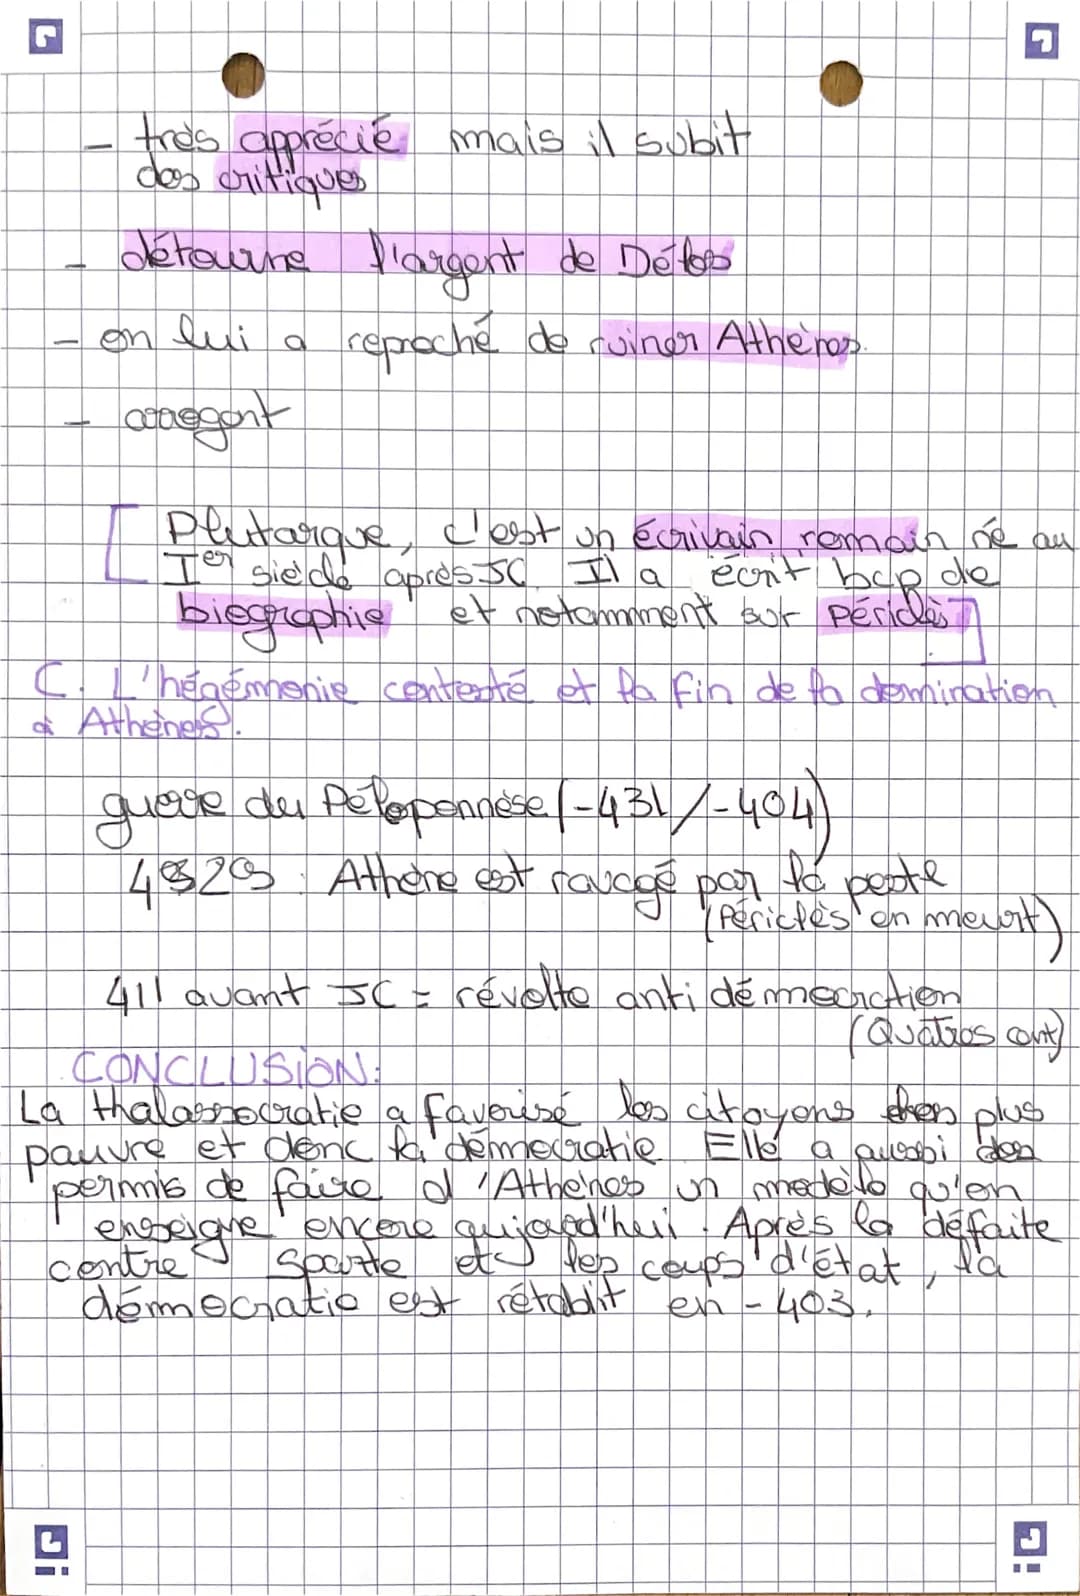 - très apprécié mais il subit
des critiques
- détourne l'argent de Délos
- on lui a reproché de ruiner Athènes.
- arrogant
[Plutarque, c'est un écrivain romain né au
Ier siècle après JC. Il a écrit bcp de
biographie et notamment sur périclès]
C. L'hégémonie contesté et la fin de la domination
d'Athènes.
guerre du Péloponnèse (-431/-404)
Athène est ravagé par la peste
(Périclès en meurt)
411 avant JC = révolte anti démocration
(Quatres cent)
CONCLUSION:
La thalassocratie a favorisé les citoyens plus
pauvre et donc la démocratie. Elle a aussi
permis de faire d'Athènes un modèle qu'on
enseigne encore aujourd'hui. Après la défaite
contre Sparte et les coups d'état, la
démocratie est rétablit en -403.